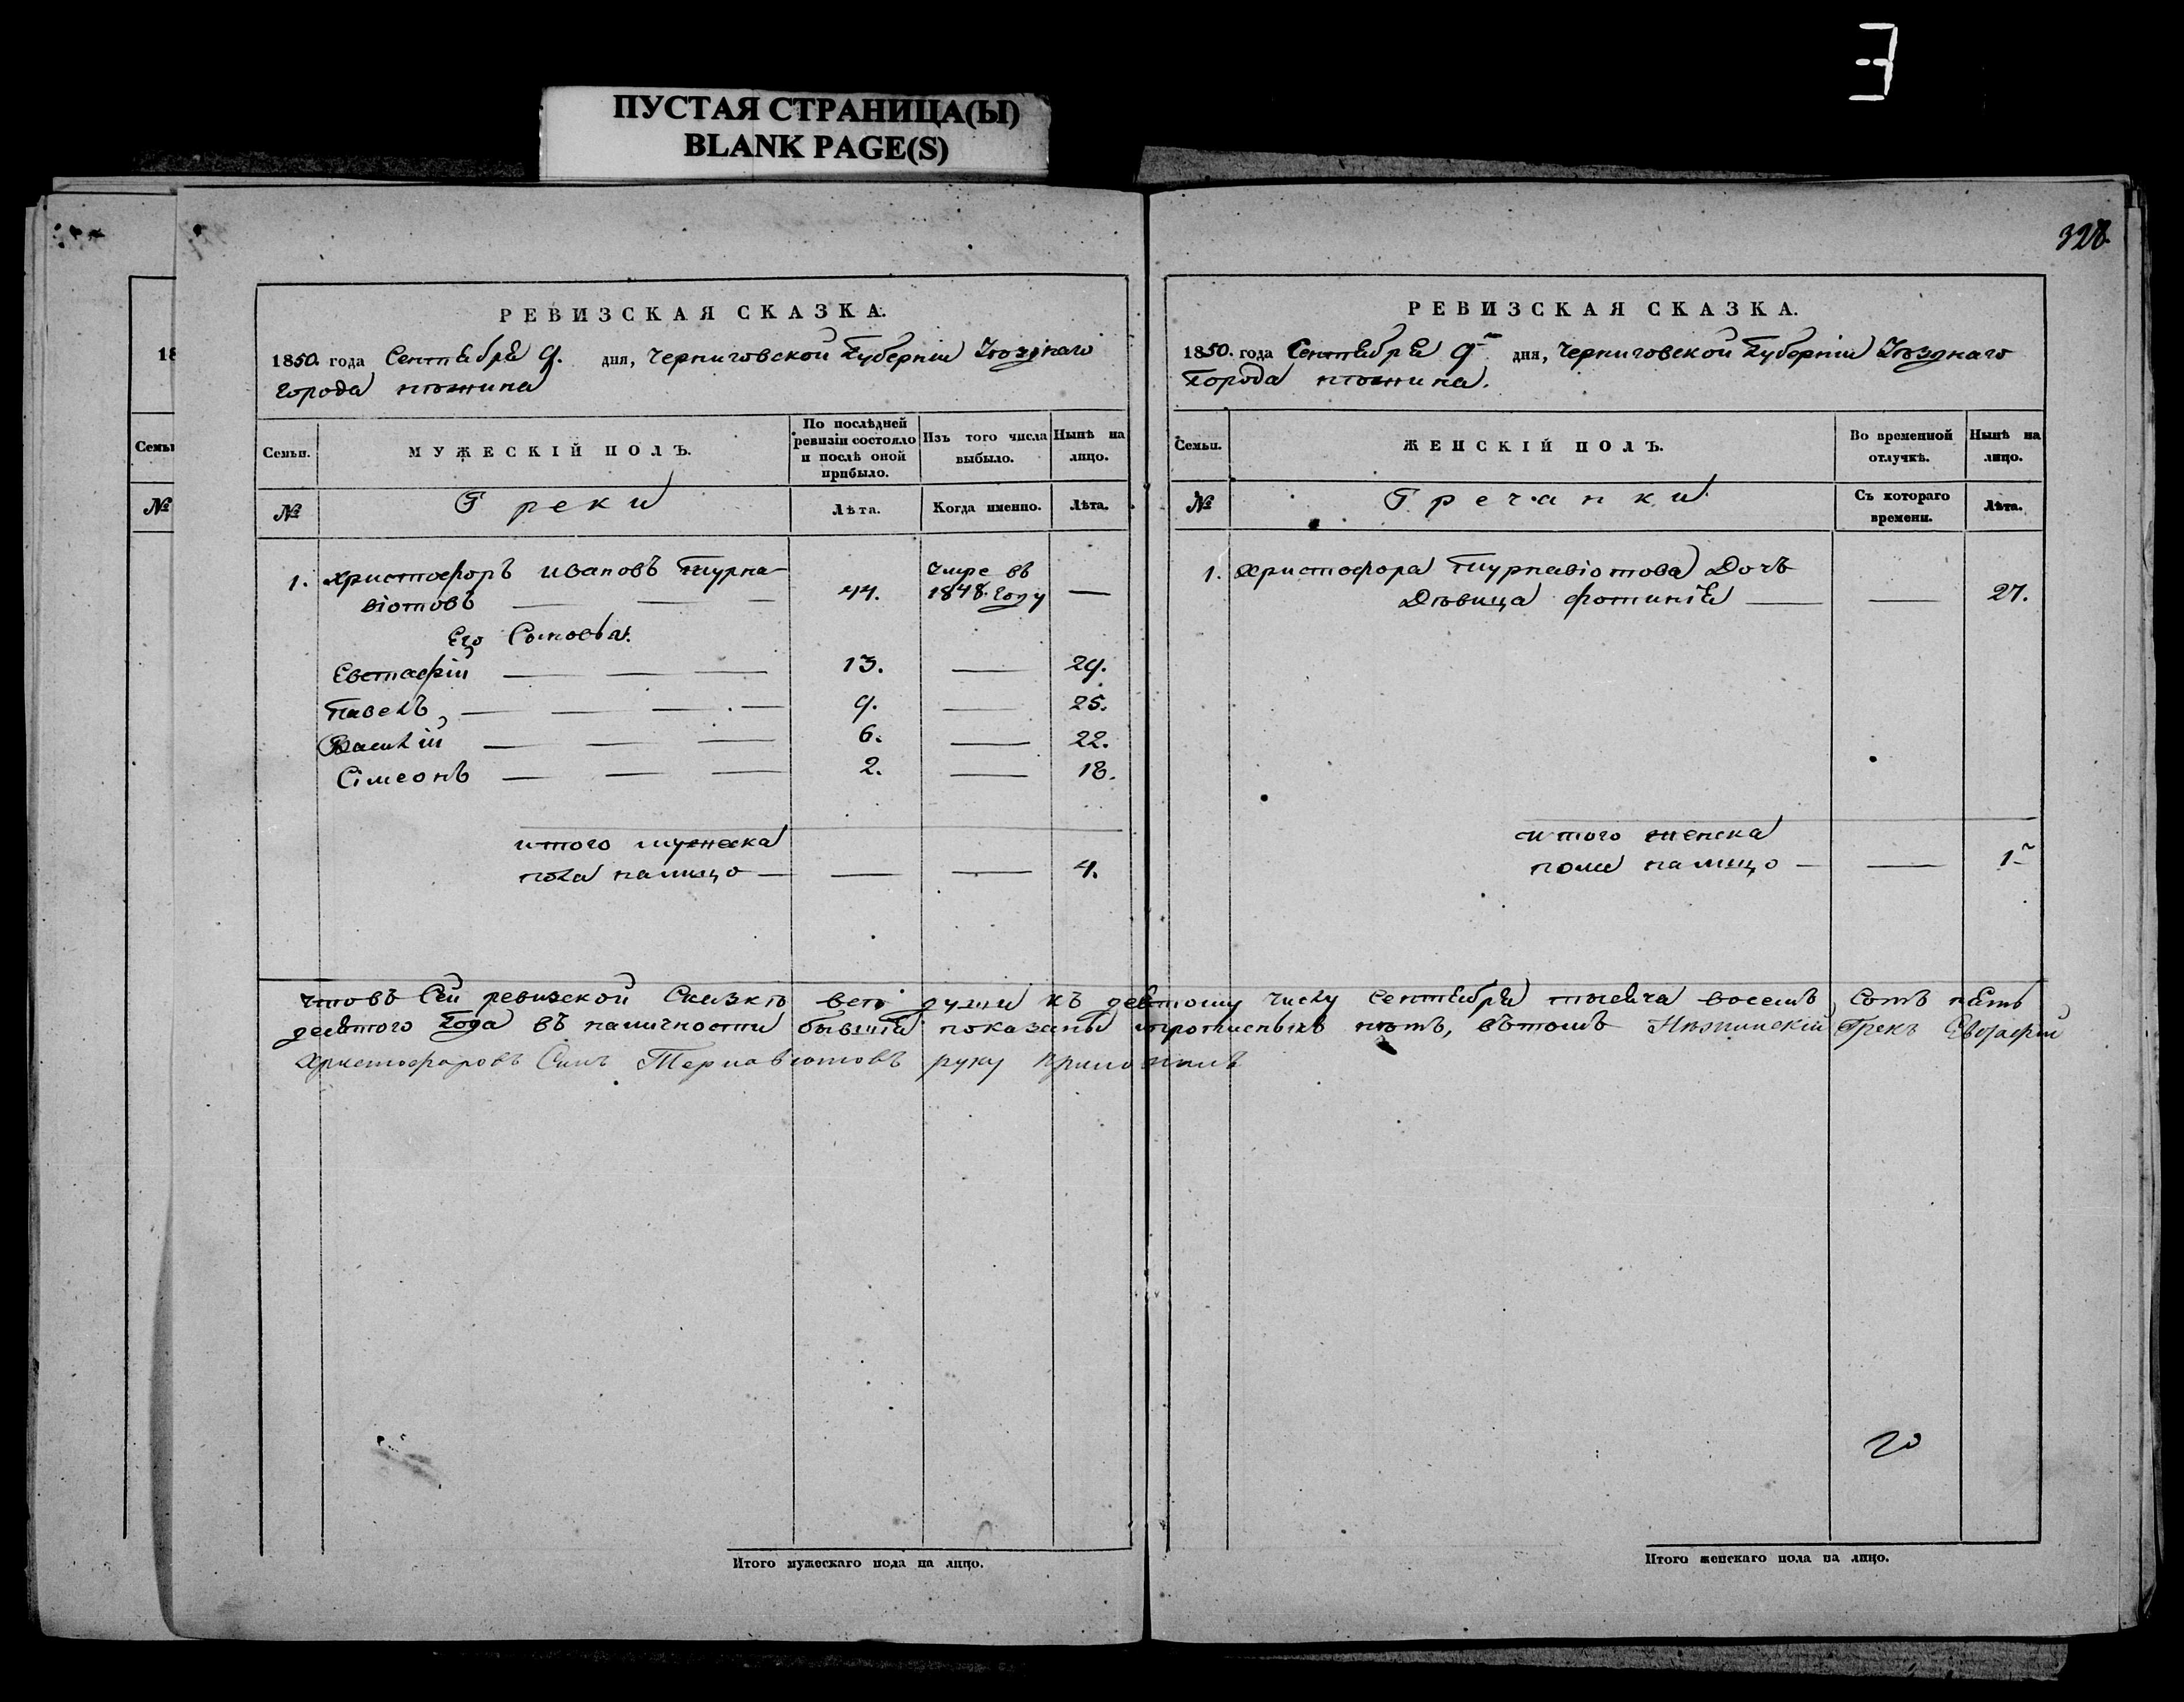 ПУСТАЯ СТРАНИЦА(Ы)
BLANK PAGE(S)
328.
РЕВИЗСКАЯ СКАЗКА.
1850. года Сентября 9. дня, Черниговской Губерніи Уѣзднаго
города нѣжина
Семьи.
МУЖЕСКІЙ ПОЛЪ.
По послѣдней
ревизіи состояло
и послѣ оной
прибыло.
Изъ того числа
выбыло.
Нынѣ на
лицо.
№
Греки
Лѣта.
Когда именно.
Лѣта.
1. Христофоръ ивановъ Турна-
віотовъ — — 44. Умре въ 1848. Году —
Его Сыновья.
Евстафій — — — 13. — 29.
Павелъ — — — 9. — 25.
Василій — — — 6. — 22.
Сімеонъ — — — 2. — 18.
итого мужеска
пола налицо — — — 4.
РЕВИЗСКАЯ СКАЗКА.
1850. года Сентября 9 дня, Черниговской Губерніи Уѣзднаго
Города нѣжина.
Семьи.
ЖЕНСКІЙ ПОЛЪ.
Во временной
отлучкѣ.
Нынѣ на
лицо.
№
Гречанки
Съ котораго
времени.
Лѣта.
1. Христофора Турнавіотова Дочь
Дѣвица фотинія — — 27.
итого женска
пола налицо — — 1
Чтовъ Сей ревизской Сказкѣ всѣ души къ девятому числу Сентября тысяча восемъ Сотъ пять
десятого Года въ наличности бывшія показаны и прописныхъ нѣтъ, вътомъ Нѣжинскій Грекъ Евстафій
Христофоровъ Сынъ Тернавіотовъ руку Приложилъ
20
Итого мужескаго пола на лицо.
Итого женскаго пола на лицо.
18
Семьи
№